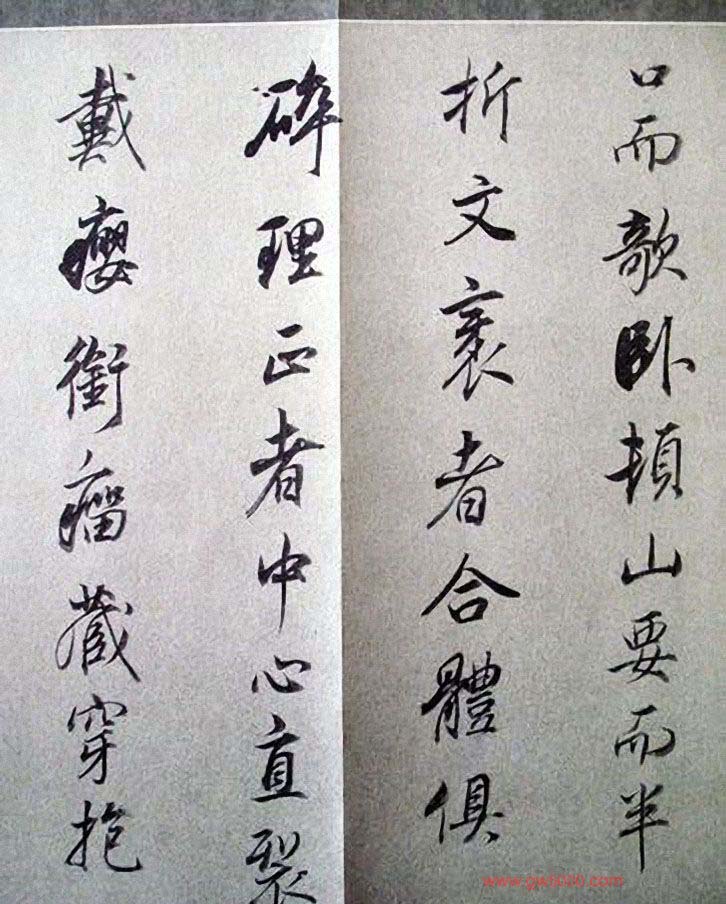 口而欹卧頓山要而半
折文衺者合體俱
碎理正者中心直裂
戴癭銜瘤藏穿抱